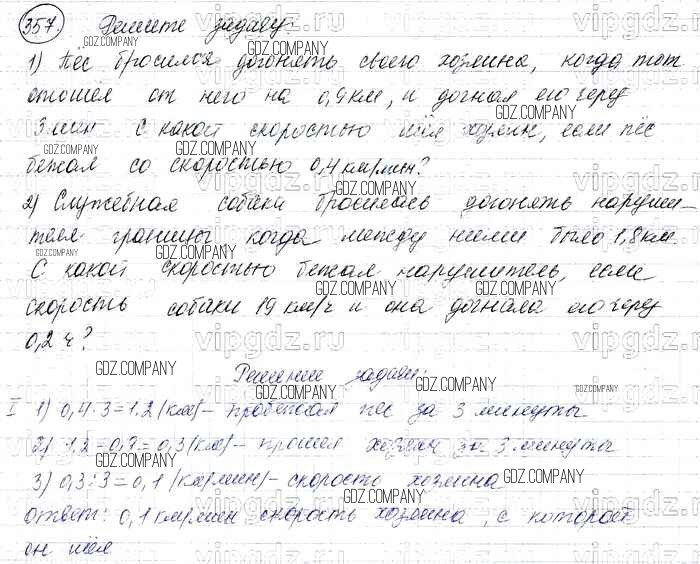 357. Решите задачу.
1) Пёс бросился догонять своего хозяина, когда тот
отошел от него на 0,9 км, и догнал его через
3 мин С какой скоростью шёл хозяин, если пёс
бежал со скоростью 0,4 км/мин?
2) Служебная собака бросилась догонять наруши-
теля границы когда между ними было 1,8 км
С какой скоростью бежал нарушитель, если
скорость собаки 19 км/ч и она догнала его через
0,2 ч?
Решение задачи:
I 1) 0,4·3=1.2 (км) – пробежал пёс за 3 минуты
2) 1,2-0,9=0,3 (км) – прошел хозяин за 3 минуты
3) 0,3:3=0,1 (км/мин) – скорость хозяина
Ответ: 0,1 км/мин скорость хозяина, с которой
он шёл
GDZ.COMPANY
vipgdz.ru